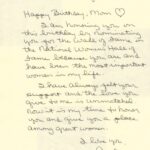 Happy Birthday, Mom ♡
I am honoring you on
this birthday by nominating
you for the Wall of Fame in
the National Women's Hall of
Fame because you are and
have been the most important
woman in my life.
I have always felt your
support and the love you
give to me is unmatched
Now it is my time to honor
you and give you a place
among great women.
I love you